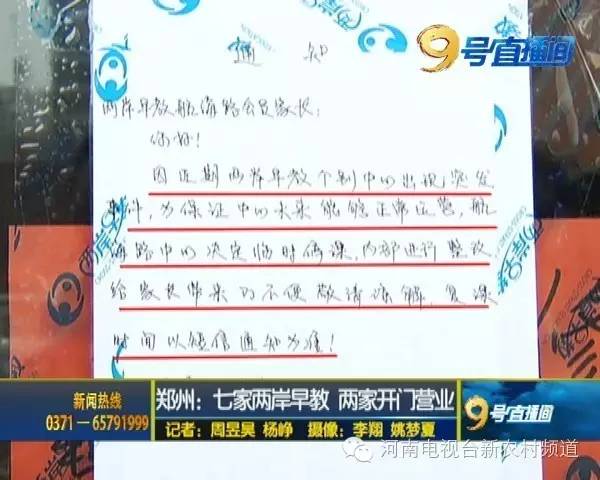 9号直播间
通知
两岸早教航海路会员家长：
你好！
因近期两岸早教个别中心出现突发
事件，为保证中心未来能够正常运营，航
海路中心决定临时停课，内部进行整改
给家长带来的不便敬请谅解，复课
时间以短信通知为准！
两岸早教
新闻热线
0371—65791999
郑州：七家两岸早教 两家开门营业
记者：周昱昊 杨峥 摄像：李翔 姚梦夏
9号直播间
河南电视台新农村频道